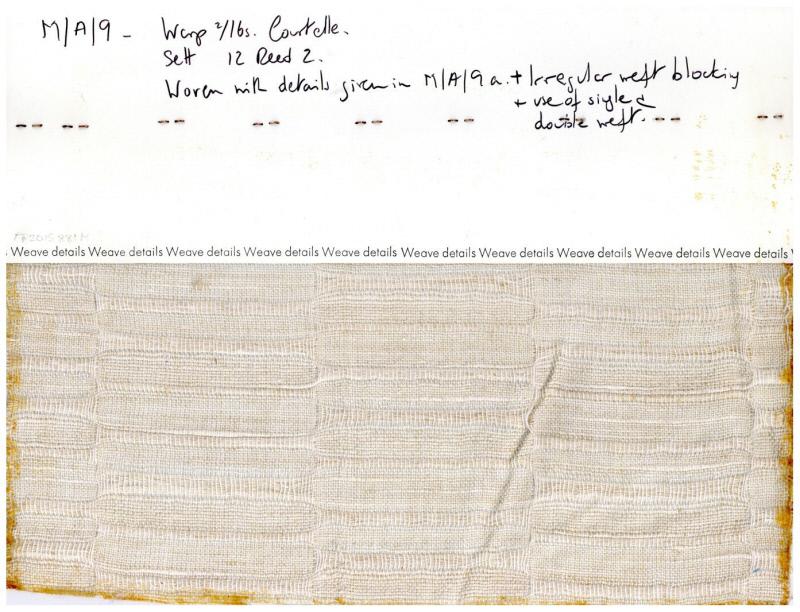 M/A/9 - Warp 2/16s. Courtelle.
Sett 12 Reed 2.
Woven with details given in M/A/9a. + Irregular weft blocking
+ use of single &
double weft.
Weave details Weave details Weave details Weave details Weave details Weave details Weave details Weave details Weave details Weave details